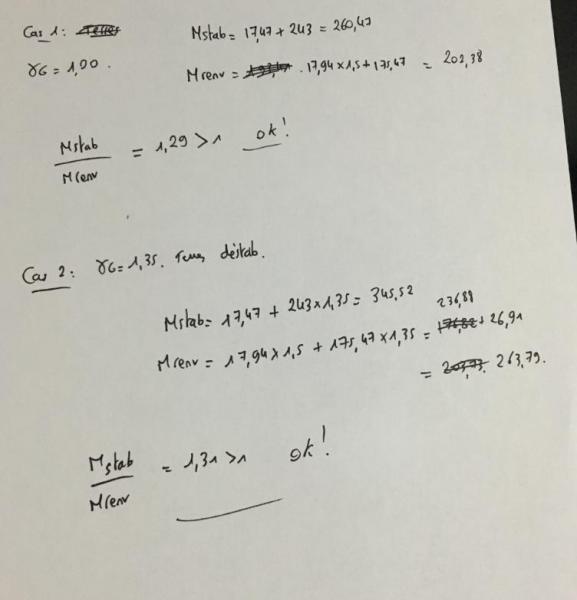 Cas 1:
Mstab = 17,47 + 243 = 260,47
γG = 1,00.
Mrenv = 17,94 x 1,5 + 175,47 = 202,38
Mstab
Mrenv
= 1,29 > 1 ok!
Cas 2: γG = 1,35. Terres déstab.
Mstab = 17,47 + 243 x 1,35 = 345,52
236,88
Mrenv = 17,94 x 1,5 + 175,47 x 1,35 = 176,82 + 26,91
= 203,73. 263,79.
Mstab
Mrenv
= 1,31 > 1 ok!